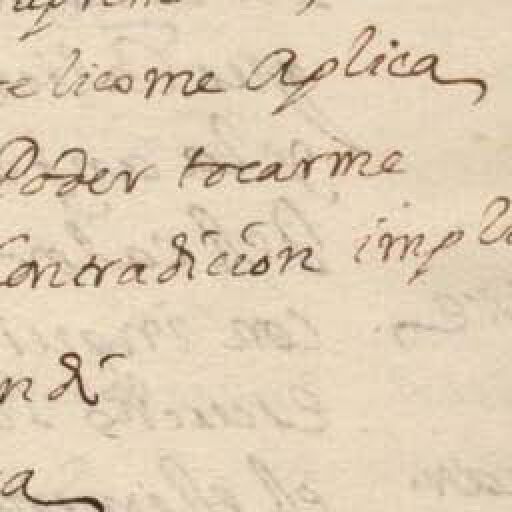 elicome Aplica
Poder tocarme
Contradicion impl
n di
a